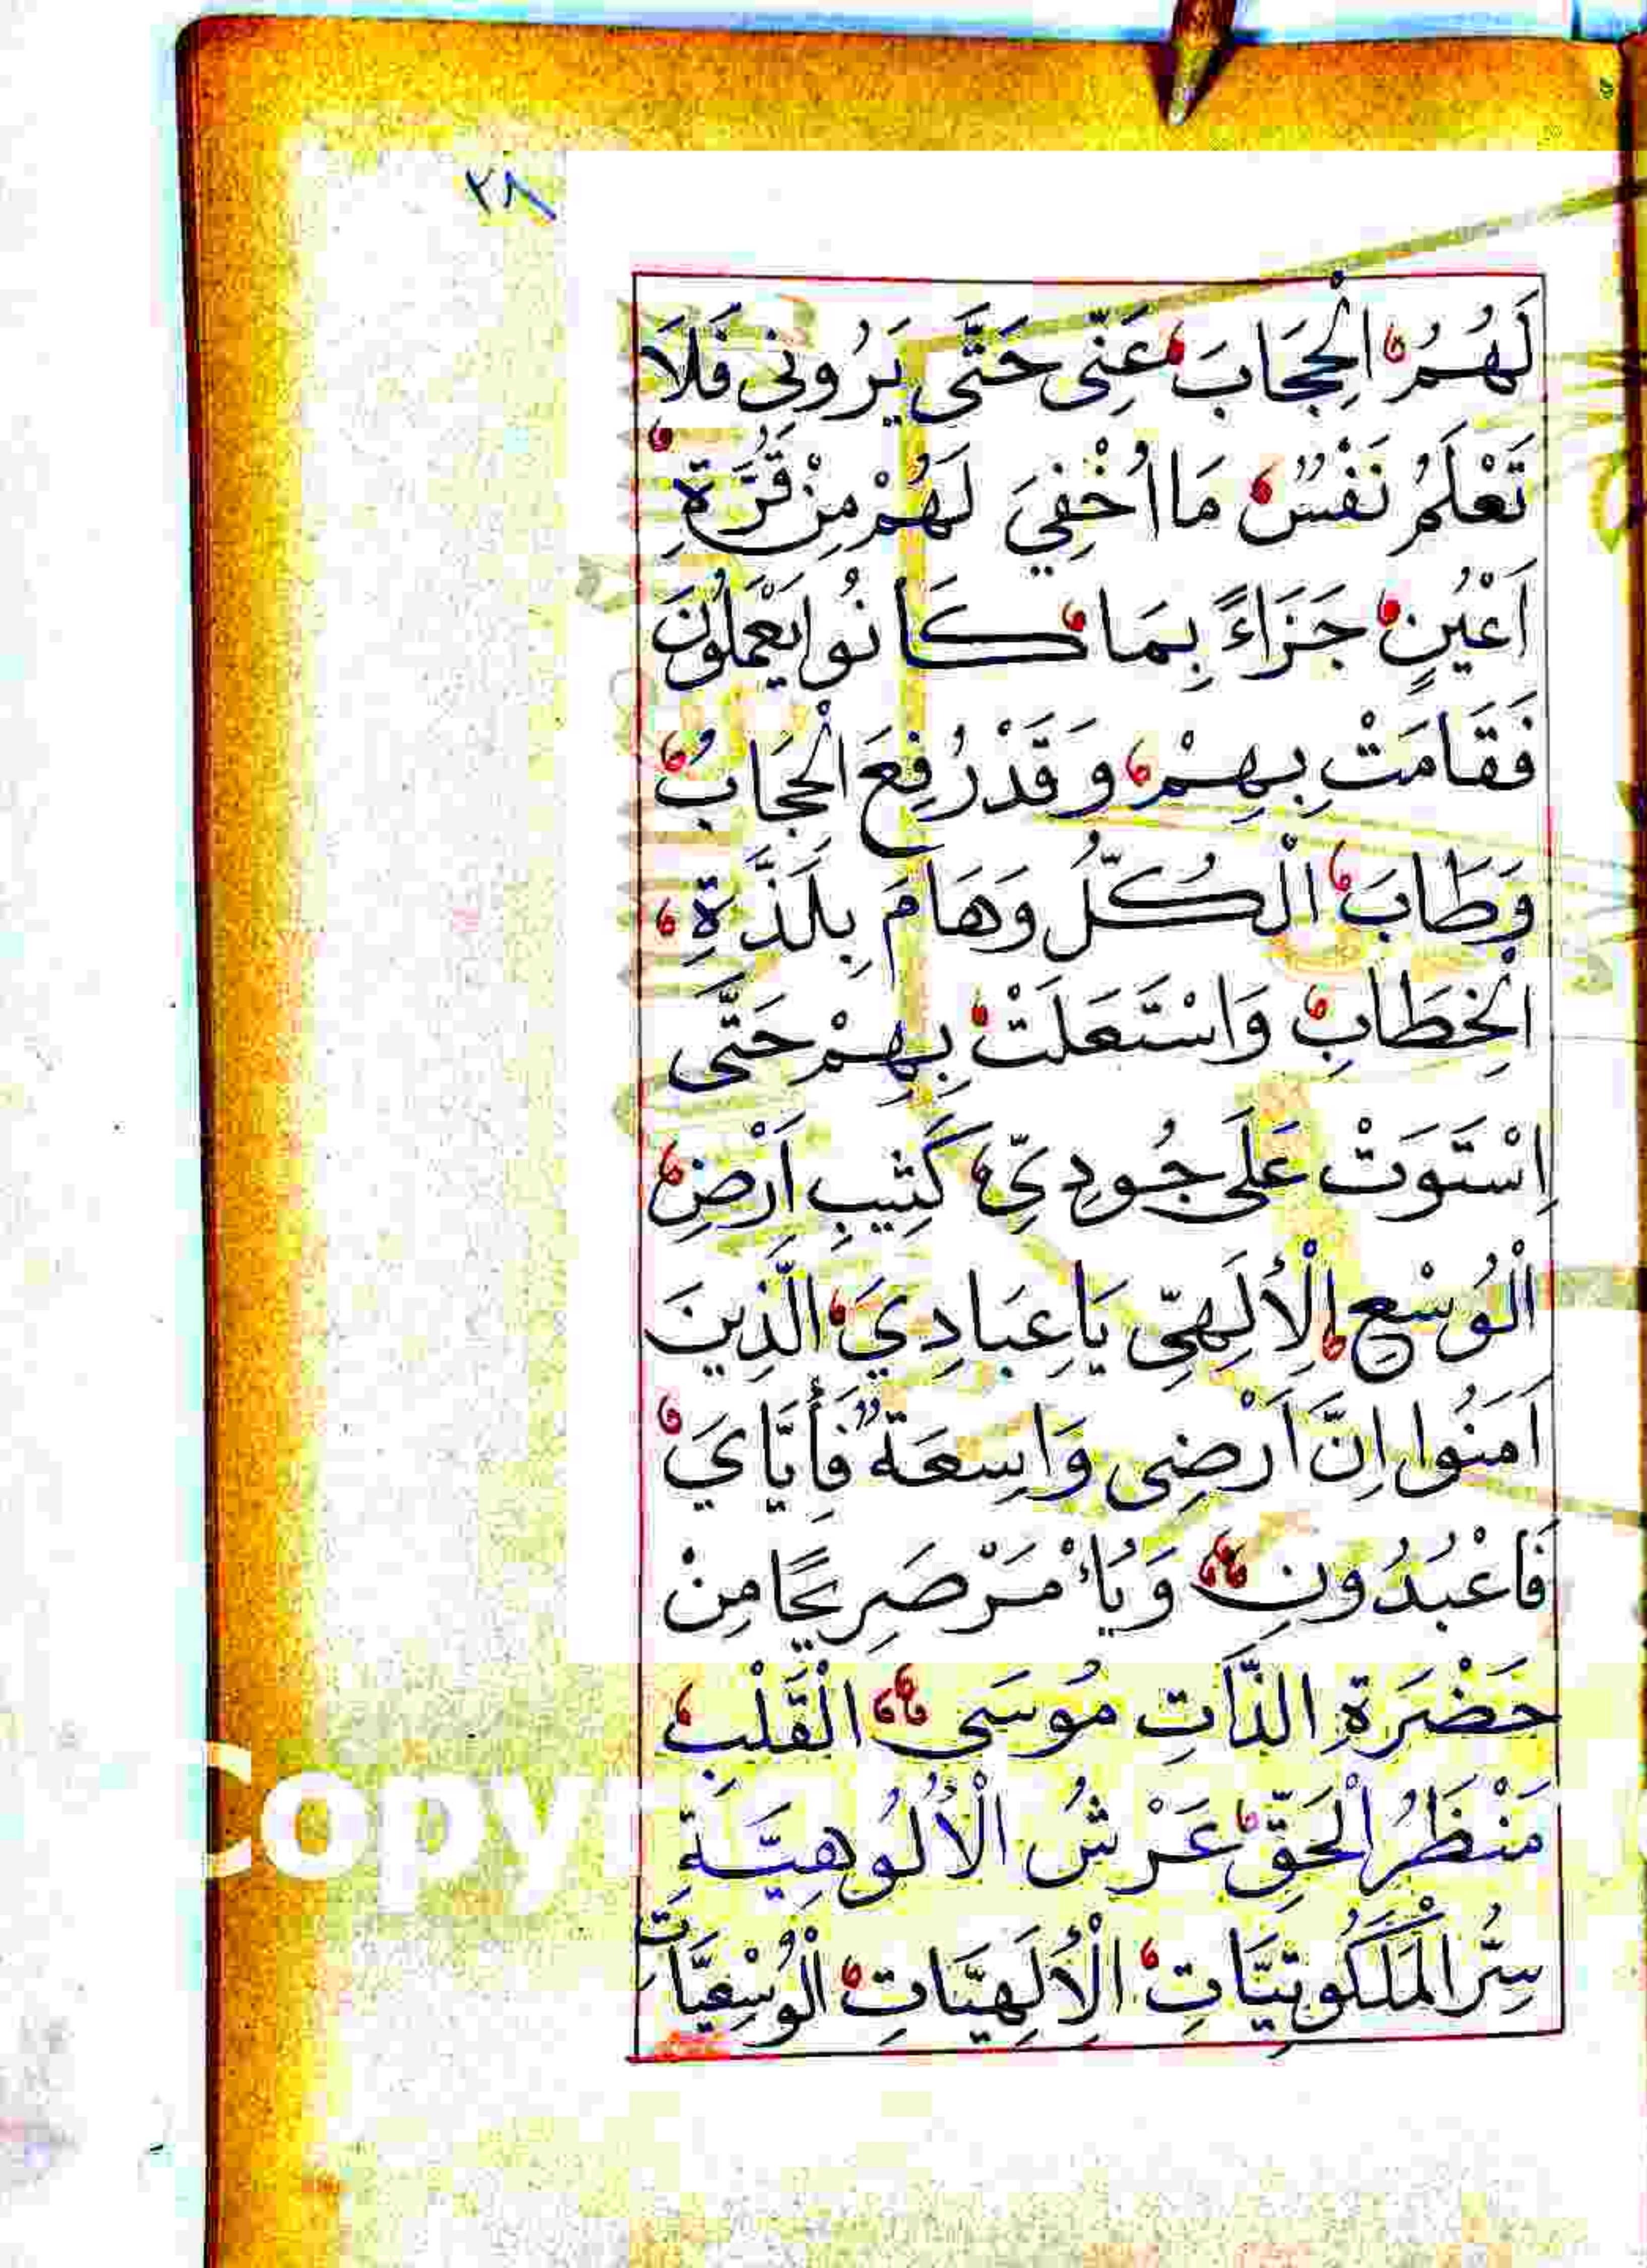 ٣٨
لَهُمُ الْحِجَابَ عَنِّى حَتَّى يَرُونِى فَلَا
تَعْلَمُ نَفْسٌ مَا اُخْفِيَ لَهُمْ مِنْ قُرَّةِ
اَعْيُنٍ جَزَاءً بِمَا كَانُوا يَعْمَلُونَ
فَقَامَتْ بِهِمْ وَقَدْ رُفِعَ الْحِجَابُ
وَطَابَ الْكُلُّ وَهَامَ بِلَذَّةِ
الْخِطَابِ وَاسْتَعَلَتْ بِهِمْ حَتَّى
اِسْتَوَتْ عَلَى جُودِيِّ كَثِيبِ اَرْضِ
الْوُسْعِ الْأِلَهِىِّ يَاعِبَادِيَ الَّذِينَ
اَمَنُوا اِنَّ اَرْضِى وَاسِعَةٌ فَأِيَّايَ
فَاعْبُدُونِ وَيَأْمَرْ صَرِيحًا مِنْ
حَضْرَةِ الذَّاتِ مُوسَى الْقَلْبِ
مَنْظَرُ الْحَقِّ عَرْشُ الْاُلُوهِيَّةِ
سِرُّ الْمَلَكُوتِيَّاتِ الْأِلَهِيَّاتِ الْوُسْعِيَّاتِ
Copy